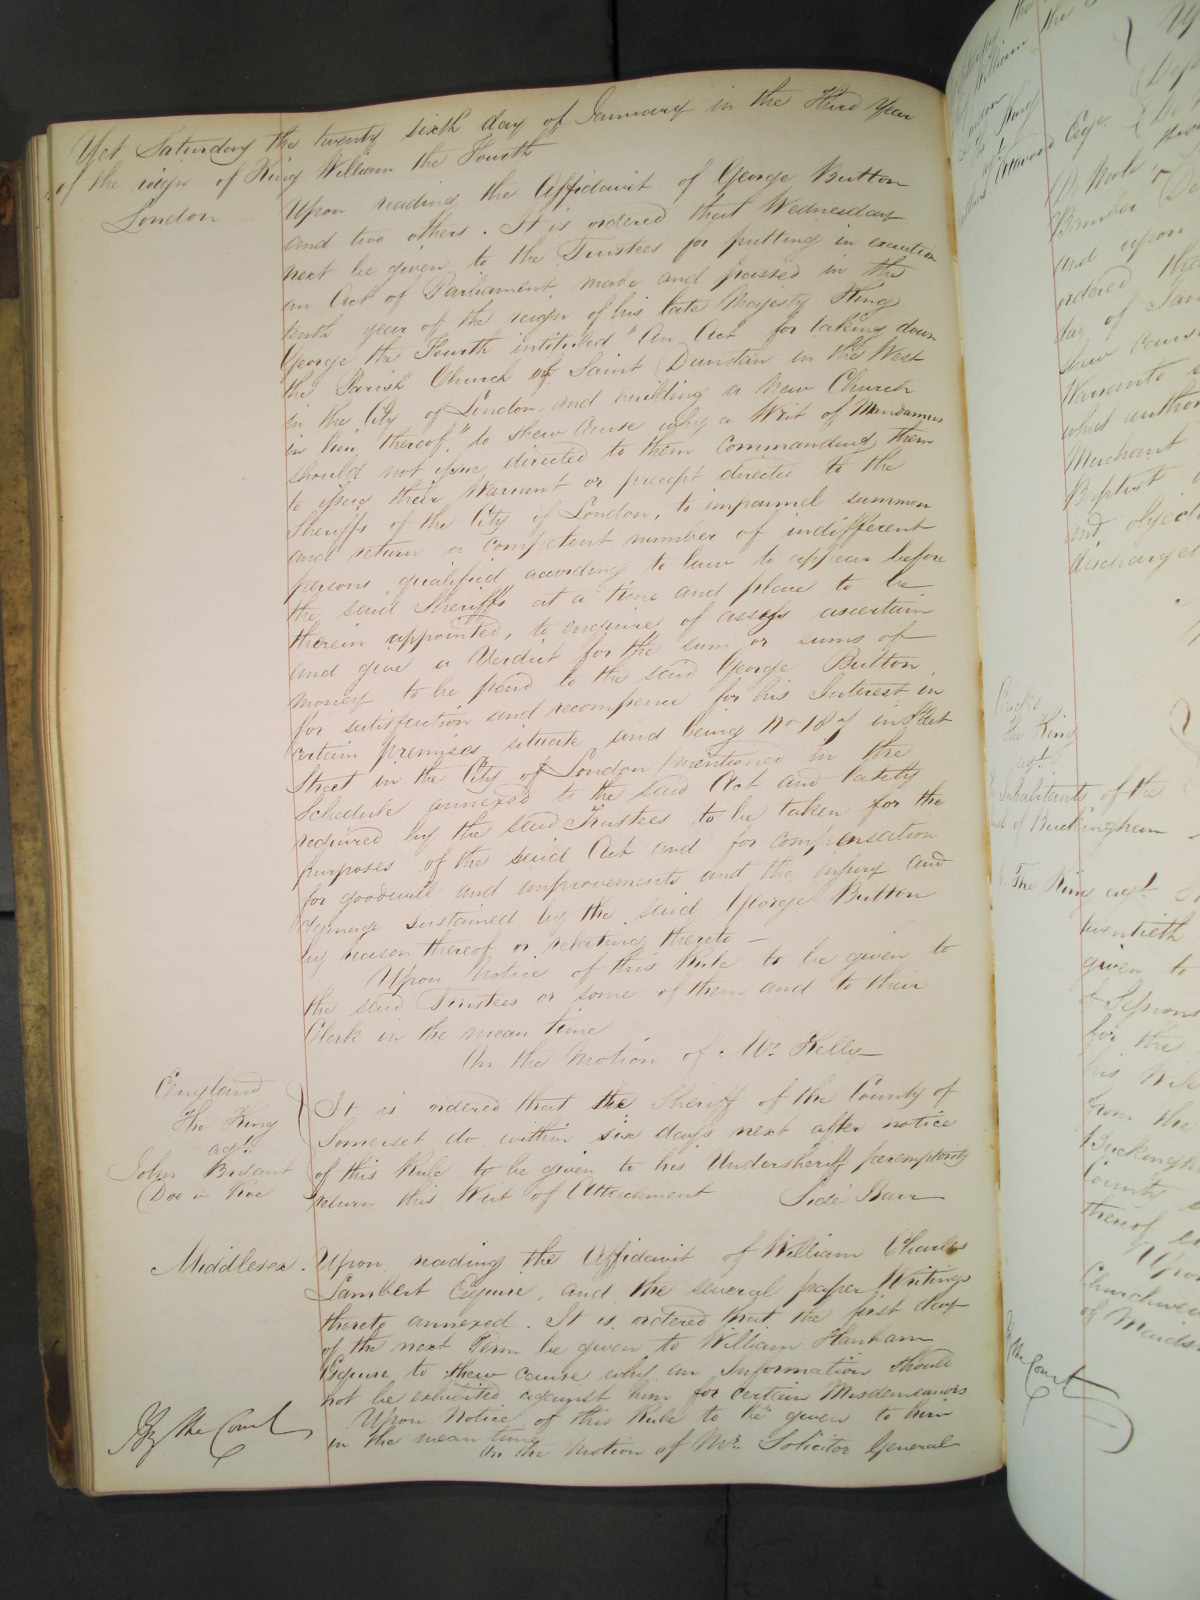 Yet Saturday the twenty sixth day of January in the Third Year
of the reign of King William the Fourth
London
Upon reading the Affidavit of George Button
and two others. It is ordered that Wednesday
next be given to the Trustees for putting in execution
an Act of Parliament, made and passed in the
tenth year of the reign of his late Majesty King
George the Fourth intituled "An Act for taking down
the Parish Church of Saint Dunstan in the West
in the City of London, and building a New Church
in lieu thereof" to shew cause why a Writ of Mandamus
should not issue directed to them commanding them
to issue their Warrant or precept directed to the
Sheriffs of the City of London, to impannel summon
and return a competent number of indifferent
persons qualified according to law to appear before
the said Sheriffs at a time and place to be
therein appointed, to enquire of assess ascertain
and give a Verdict for the sum or sums of
money to be paid to the said George Button
for satisfaction and recompence for his Interest in
certain premises situate and being No 187 in Fleet
Street in the City of London (mentioned in the
Schedule annexed to the said Act and lately
required by the said Trustees to be taken for the
purposes of the said Act and for compensation
for goodwill and improvements and the injury and
damage sustained by the said George Button
by reason thereof or relating thereto —
Upon Notice of this Rule to be given to
the said Trustees or some of them and to their
Clerk in the mean time
On the Motion of Mr. Kelly
England
The King
agt.
John Bryant
Doe v Roe
It is ordered that the Sheriff of the County of
Somerset do within six days next after notice
of this Rule to be given to his Undersheriff peremptorily
return this Writ of Attachment Side Bar
Middlesex.
Upon reading the Affidavit of William Charles
Lambert Esquire, and the several paper Writings
thereto annexed. It is ordered that the first day
of the next Term be given to William Hanham
Esquire to shew cause why an Information should
not be exhibited against him for certain Misdemeanors
Upon Notice of this Rule to be given to him
in the mean time
On the Motion of Mr. Solicitor General
By the Court
the
William the
London
The King
agt.
Esqr.
and upon
ordered
day of Jan
shew cause
Warrants
what author
Merchant
Baptist
and object
discharged
The King
agt.
Inhabitants of the
of Buckingham
The King agt.
twentieth
given to
for the
his
from the
Buckingh
County
thereof
Upon
Churchwa
of Maids
By the Court